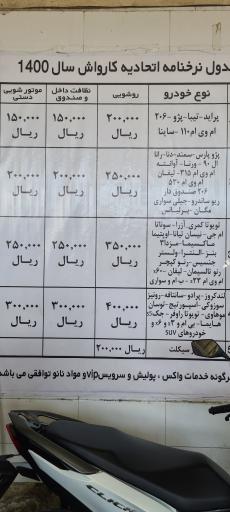 جدول نرخنامه اتحادیه کارواش سال 1400
نوع خودرو
روشویی
نظافت داخل و صندوق
موتور شویی دستی
پراید-تیبا-پژو ۲۰۶-
ام وی ام ۱۱۰- ساینا
۲۰۰,۰۰۰ ریال
۱۵۰,۰۰۰ ریال
۱۵۰,۰۰۰ ریال
پژو پارس-سمند-دنا-رانا
ال ۹۰ - ورنا- آوانته
ام وی ام ۳۱۵- لیفان
ام وی ام ۵۳۰
۲۰۶ صندوق دار
ریو ساندرو-جیلی سواری
مگان- برلیانس
۲۵۰,۰۰۰ ریال
۲۰۰,۰۰۰ ریال
۲۰۰,۰۰۰ ریال
تویوتا کمری-آزرا-سوناتا
ام جی-نیسان تیانا-اپتیما
ماکسیما- مزدا۳
بنز-النترا- ولستر
جنسیس-رنو کپچر
رنو تالیسمان- لیفان ۶۰-
ام وی ام ۲۲- ب ام و سواری
۳۵۰,۰۰۰ ریال
۲۵۰,۰۰۰ ریال
۲۵۰,۰۰۰ ریال
لندکروز-پرادو-سانتافه-رونیز
سوزوکی-اسپورتیج-توسان
موهاوی-تویوتا راوفور-جک s5
هایما- بی ام و x3 و x6
خودروهای SUV
۴۰۰,۰۰۰ ریال
۳۰۰,۰۰۰ ریال
۳۰۰,۰۰۰ ریال
سیکلت
۲۰۰,۰۰۰ ریال
هرگونه خدمات واکس ، پولیش و سرویس vip و مواد نانو توافقی می باشد
CLICK